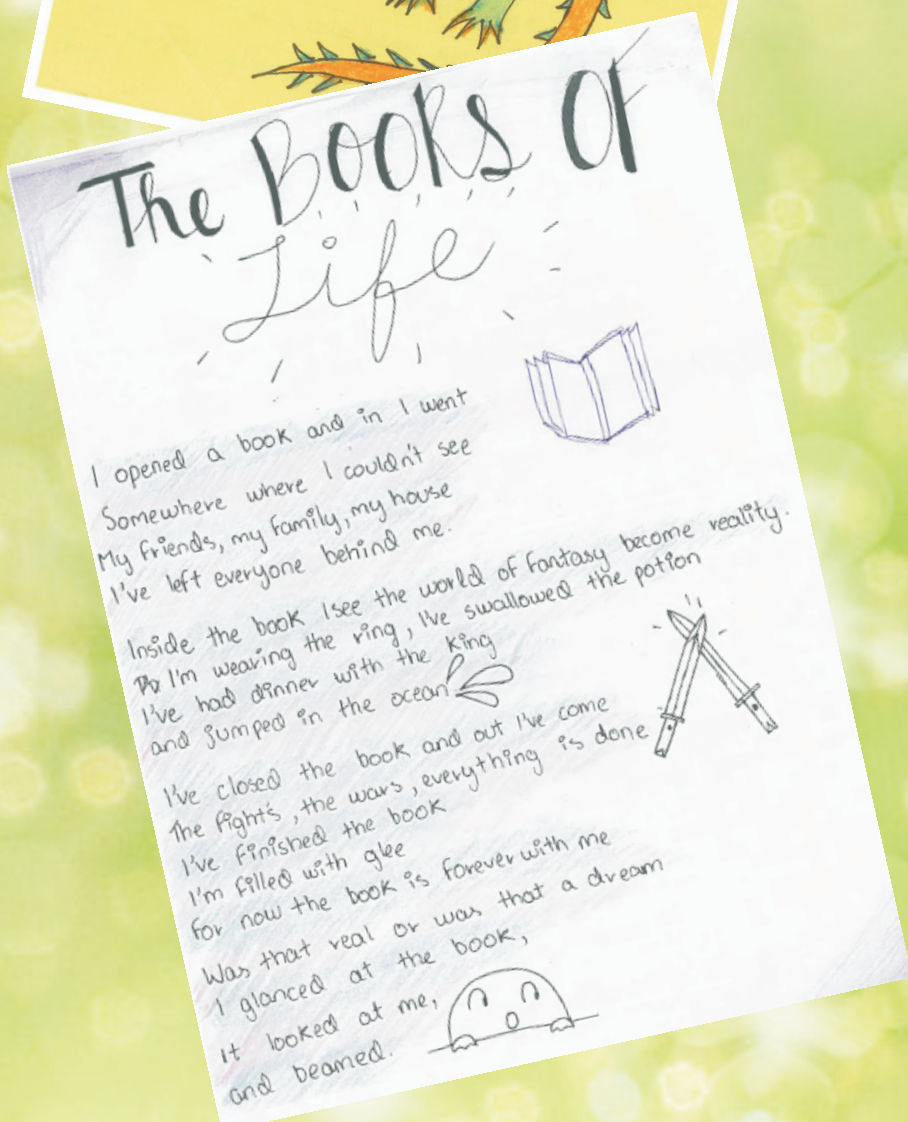 The Books Of
Life
I opened a book and in I went
Somewhere where I couldn't see
My friends, my family, my house
I've left everyone behind me.
Inside the book I see the world of fantasy become reality.
I'm wearing the ring, I've swallowed the potion
I've had dinner with the king
and jumped in the ocean
I've closed the book and out I've come
The fight's, the wars, everything is done
I've finished the book
I'm filled with glee
for now the book is forever with me
Was that real or was that a dream
I glanced at the book,
it looked at me,
and beamed.